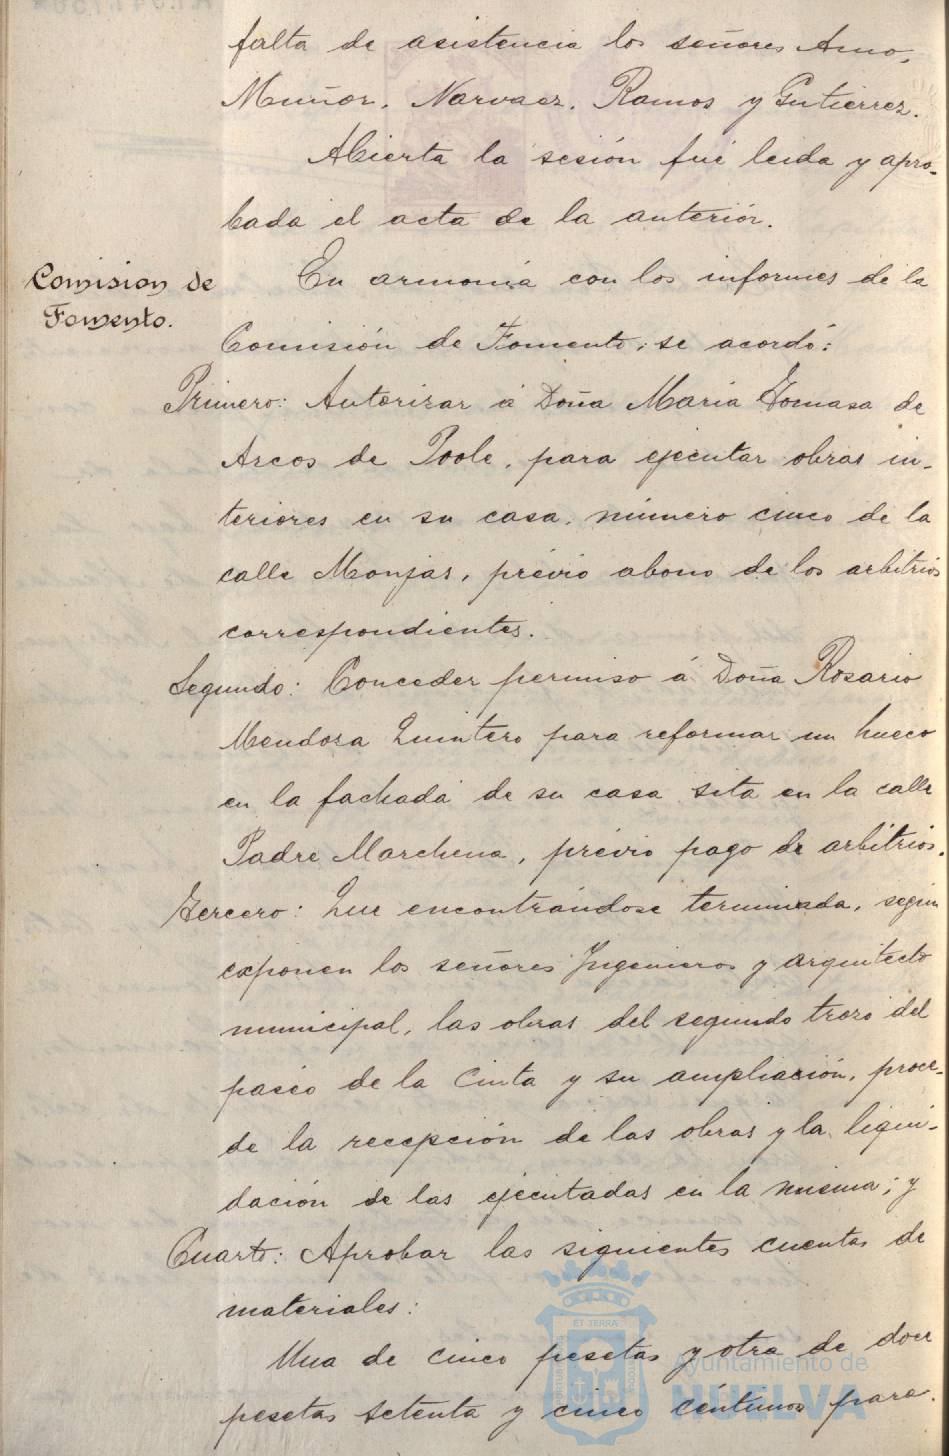 falta de asistencia los señores Amo,
Muñoz, Narvaez, Ramos y Gutierrez.
Abierta la sesión fué leida y apro-
bada el acta de la anterior.
Comision de
Fomento.
En armonía con los informes de la
Comisión de Fomento, se acordó:
Primero: Autorizar á Doña María Tomasa de
Arcos de Poole, para ejecutar obras in-
teriores en su casa, número cinco de la
calle Monjas, prévio abono de los arbitrios
correspondientes.
Segundo: Conceder permiso á Doña Rosario
Mendoza Quintero para reformar un hueco
en la fachada de su casa sita en la calle
Padre Marchena, prévio pago de arbitrios.
Tercero: Que encontrándose terminada, según
exponen los señores Ingenieros y arquitecto
municipal, las obras del segundo trozo del
paseo de la Cinta y su ampliación, proce-
de la recepción de las obras y la liqui-
dación de las ejecutadas en la misma; y
Cuarto: Aprobar las siguientes cuentas de
materiales:
Una de cinco pesetas y otra de doce
pesetas setenta y cinco céntimos para
Ayuntamiento de
HUELVA